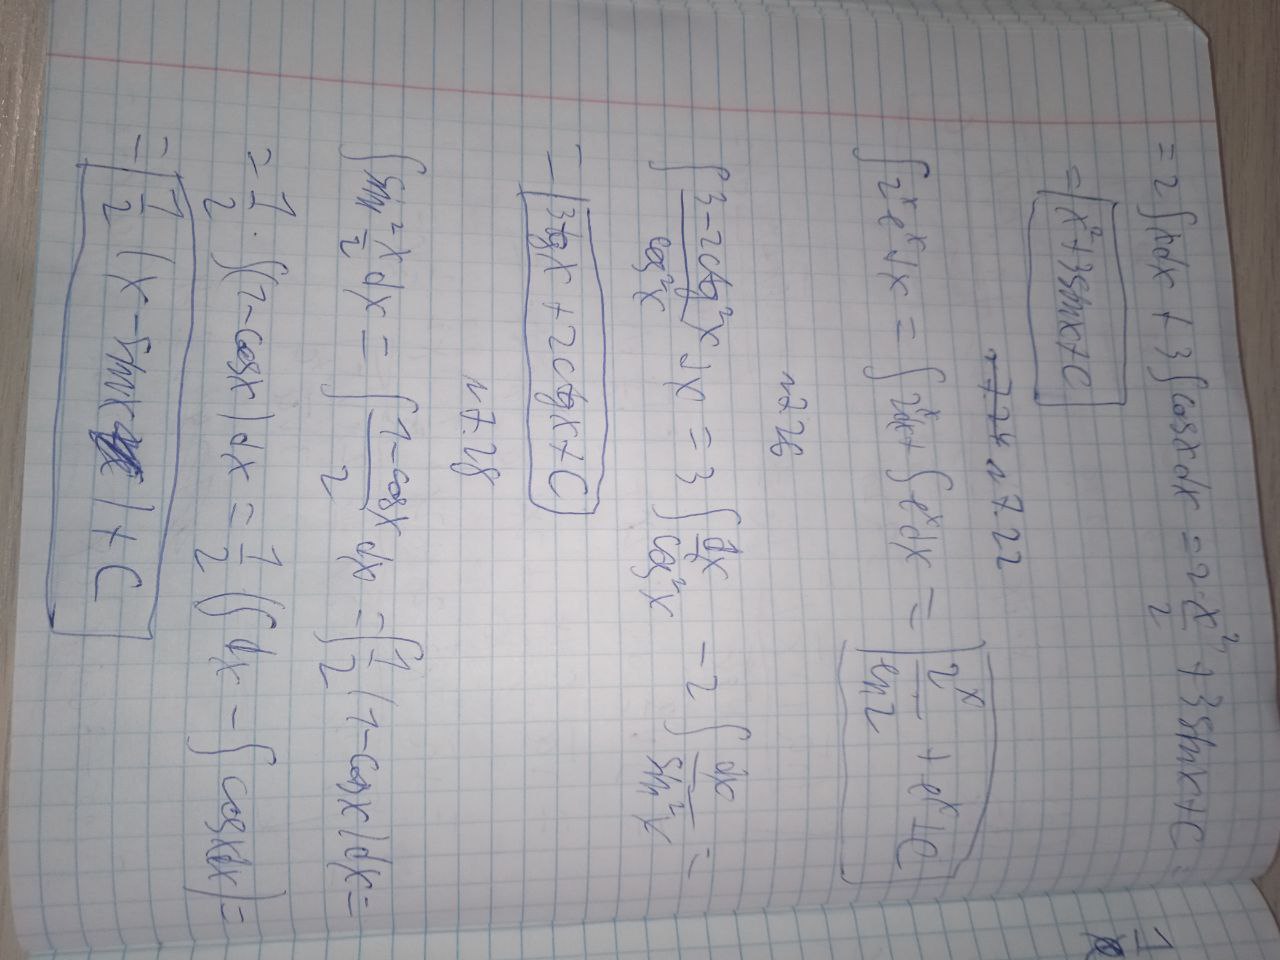 = 2 ∫xdx + 3 ∫cosxdx = 2·x²/2 + 3sinx+C =
= x²+3sinx+C
n7.22
∫2ˣeˣdx = ∫2ˣdx+∫eˣdx = 2ˣ/ln2 + eˣ+C
n7.26
∫ 3-2ctg²x/cos²x dx = 3 ∫ dx/cos²x - 2 ∫ dx/sin²x =
= 3tgx + 2ctgx+C
n7.28
∫sin² x/2 dx = ∫ 1-cosx/2 dx = ∫ 1/2 (1-cosx)dx =
= 1/2 · ∫(1-cosx)dx = 1/2 (∫dx - ∫cosxdx) =
= 1/2 (x-sinx)+C
1